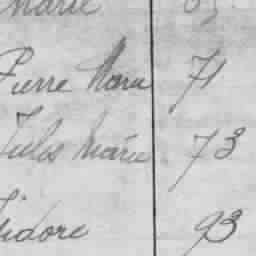 Marie
Pierre Marie 71
Jules Marie 73
Isidore 93